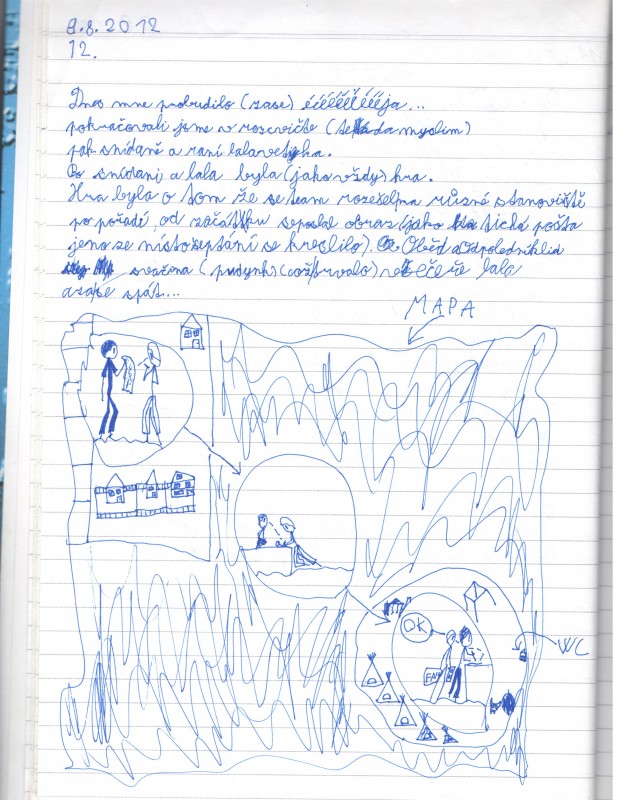 9.8.2012
12.
Dnes mne probudilo (zase) éééééééééja...
pokračovali jsme v rozcvičce (teda myslim)
pak snídaně a raní
Po snídani a byla (jako vždy) hra.
Hra byla o tom že se team rozešel na různé stanoviště
po pořadí od začátku se poslal obraz (jako tichá pošta
jeno ze místo šeptání se kreslilo). Oběd a odpolední klid
svažena (pudynk) (což trvalo) večeře
a zase spát...
MAPA
OK
WC